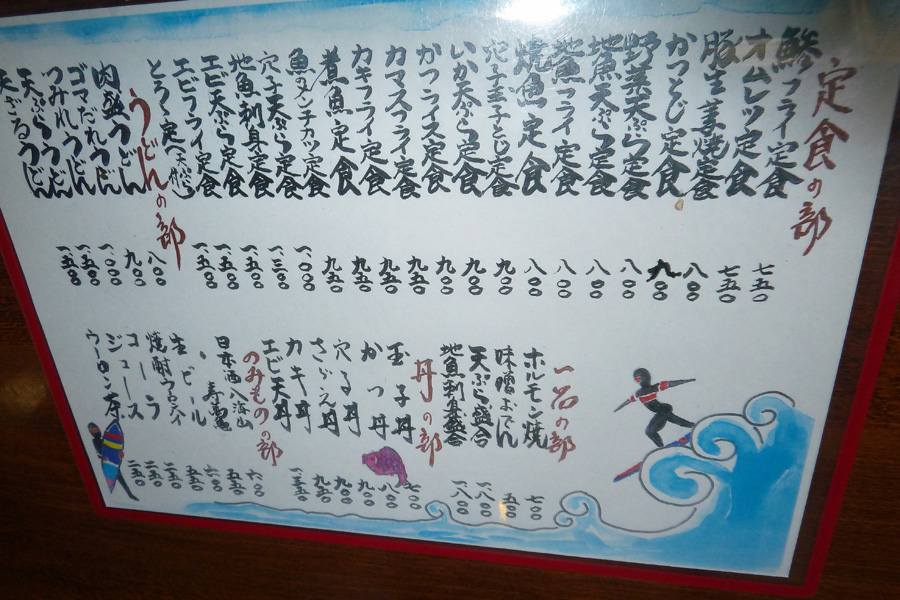 定食の部
鯵フライ定食 七五〇
オムレツ定食 七五〇
豚生姜焼定食 八〇〇
かつとじ定食 九〇〇
野菜天ぷら定食 八〇〇
地魚天ぷら定食 八〇〇
地魚フライ定食 八〇〇
焼魚定食 八〇〇
穴子玉子とじ定食 九〇〇
いか天ぷら定食 九〇〇
かつライス定食 九〇〇
カマスフライ定食 九五〇
カキフライ定食 九五〇
煮魚定食 九五〇
魚メンチカツ定食 九五〇
穴子天ぷら定食 一、〇〇〇
地魚刺身定食 一、三〇〇
エビ天ぷら定食 一、五〇〇
エビフライ定食 一、五〇〇
とろろ定食(天ぷら付) 一、五〇〇
うどんの部
肉盛うどん 八〇〇
ゴマだれうどん 九〇〇
つみれうどん 一、〇〇〇
天ぷらうどん 一、五〇〇
天ざるうどん 一、五〇〇
一品の部
ホルモン焼 七〇〇
味噌おでん 五〇〇
天ぷら盛合 一、八〇〇
地魚刺身盛合 一、八〇〇
丼の部
玉子丼 七〇〇
かつ丼 八〇〇
穴子丼 九〇〇
さざえ丼 九〇〇
カキ丼 九五〇
エビ天丼 一、三五〇
のみものの部
日本酒 八海山 六〇〇
〃 寿亀 五五〇
生ビール
焼酎
コーラ 二五〇
ジュース 二五〇
ウーロン茶 二五〇